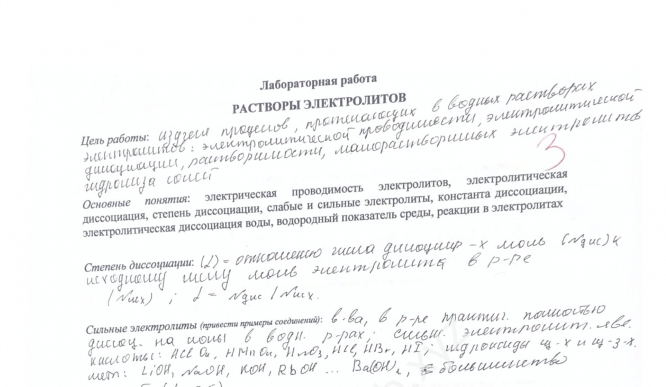 Лабораторная работа
РАСТВОРЫ ЭЛЕКТРОЛИТОВ
Цель работы: процесов, протекающих в водных растворах
электролитов: электролитической проводимости, электролитической
диссоциации, растворимости, малорастворимых электролитов
гидролиза солей
3
Основные понятия: электрическая проводимость электролитов, электролитическая
диссоциация, степень диссоциации, слабые и сильные электролиты, константа диссоциации,
электролитическая диссоциация воды, водородный показатель среды, реакции в электролитах
Степень диссоциации: (α) = отношению числа моль (Nдис) к
исходному числу моль электролита в р-ре
(Nисх) ; α = Nдис / Nисх.
Сильные электролиты (привести примеры соединений): в-ва, в р-ре практич. полностью
диссоц. на ионы в водн. р-рах; сильн. электролит. явл.
кислоты: HMnO₄, HNO₃, HCl, HBr, HI; гидроксиды щ-х и щ-з-х.
мет: LiOH, NaOH, KOH, RbOH ... Ba(OH)₂, большинство